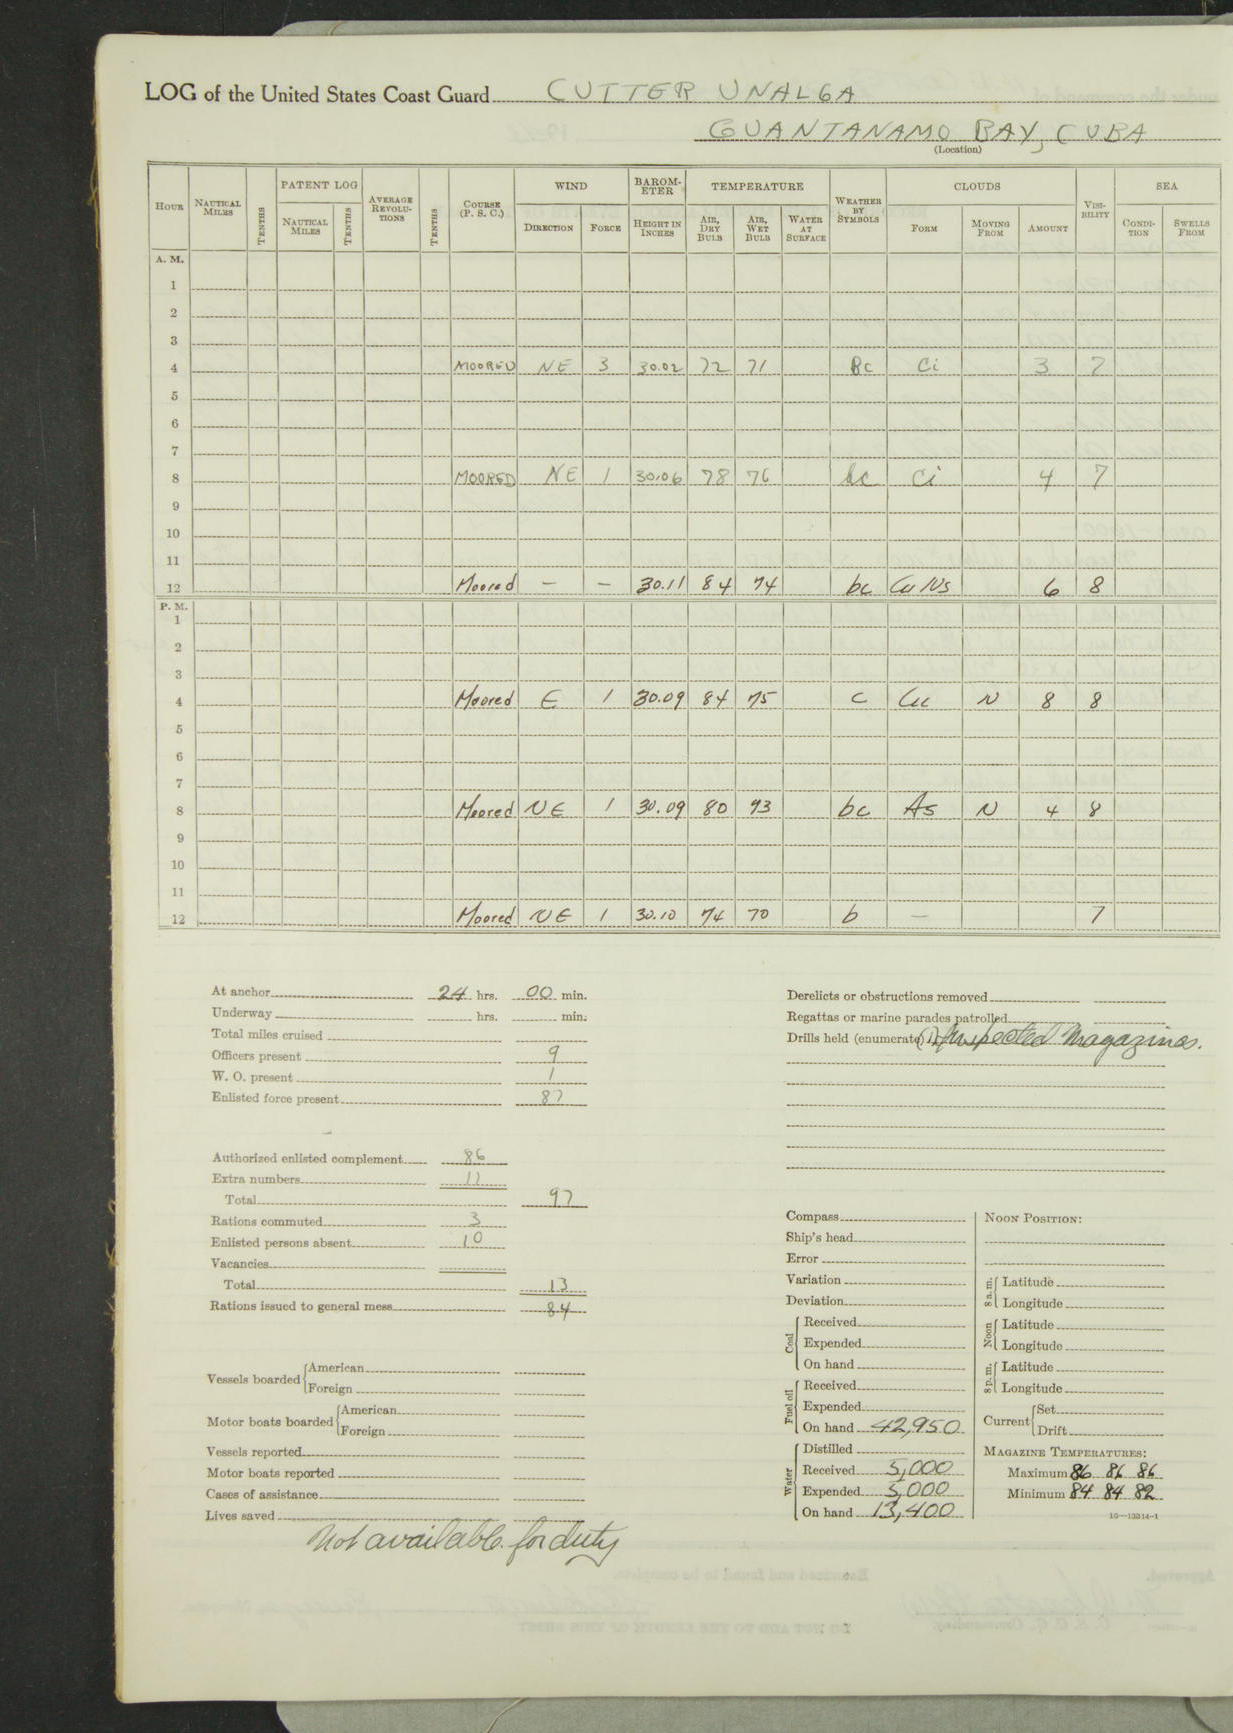 LOG of the United States Coast Guard CUTTER UNALGA
GUANTANAMO BAY, CUBA
(Location)
HOUR NAUTICAL MILES TENTHS PATENT LOG NAUTICAL MILES TENTHS AVERAGE REVOLUTIONS TENTHS COURSE (P. S. C.) WIND DIRECTION FORCE BAROMETER HEIGHT IN INCHES TEMPERATURE AIR, DRY BULB AIR, WET BULB WATER AT SURFACE WEATHER BY SYMBOLS CLOUDS FORM MOVING FROM AMOUNT VISIBILITY SEA CONDITION SWELLS FROM
A. M.
1
2
3
4 MOORED NE 3 30.02 72 71 Bc Ci 3 7
5
6
7
8 MOORED NE 1 30.06 78 76 bc Ci 4 7
9
10
11
12 Moored — — 30.11 84 74 bc 6 8
P. M.
1
2
3
4 Moored E 1 30.09 84 75 c Cu N 8 8
5
6
7
8 Moored NE 1 30.09 80 73 bc As N 4 8
9
10
11
12 Moored NE 1 30.10 74 70 b — 7
At anchor 24 hrs. 00 min.
Underway hrs. min.
Total miles cruised
Officers present 9
W. O. present 1
Enlisted force present 87
Authorized enlisted complement 86
Extra numbers 11
Total 97
Rations commuted 3
Enlisted persons absent 10
Vacancies
Total 13
Rations issued to general mess 84
Vessels boarded American
Foreign
Motor boats boarded American
Foreign
Vessels reported
Motor boats reported
Cases of assistance
Lives saved
Not available for duty
Derelicts or obstructions removed
Regattas or marine parades patrolled
Drills held (enumerate) (1) Inspected Magazines.
Compass
Ship's head
Error
Variation
Deviation
Coal Received
Expended
On hand
Fuel oil Received
Expended
On hand 42,950
Water Distilled
Received 5,000
Expended 5,000
On hand 13,400
NOON POSITION:
8 a.m. Latitude
Longitude
Noon Latitude
Longitude
8 p.m. Latitude
Longitude
Current Set
Drift
MAGAZINE TEMPERATURES:
Maximum 86 86 86
Minimum 84 84 82